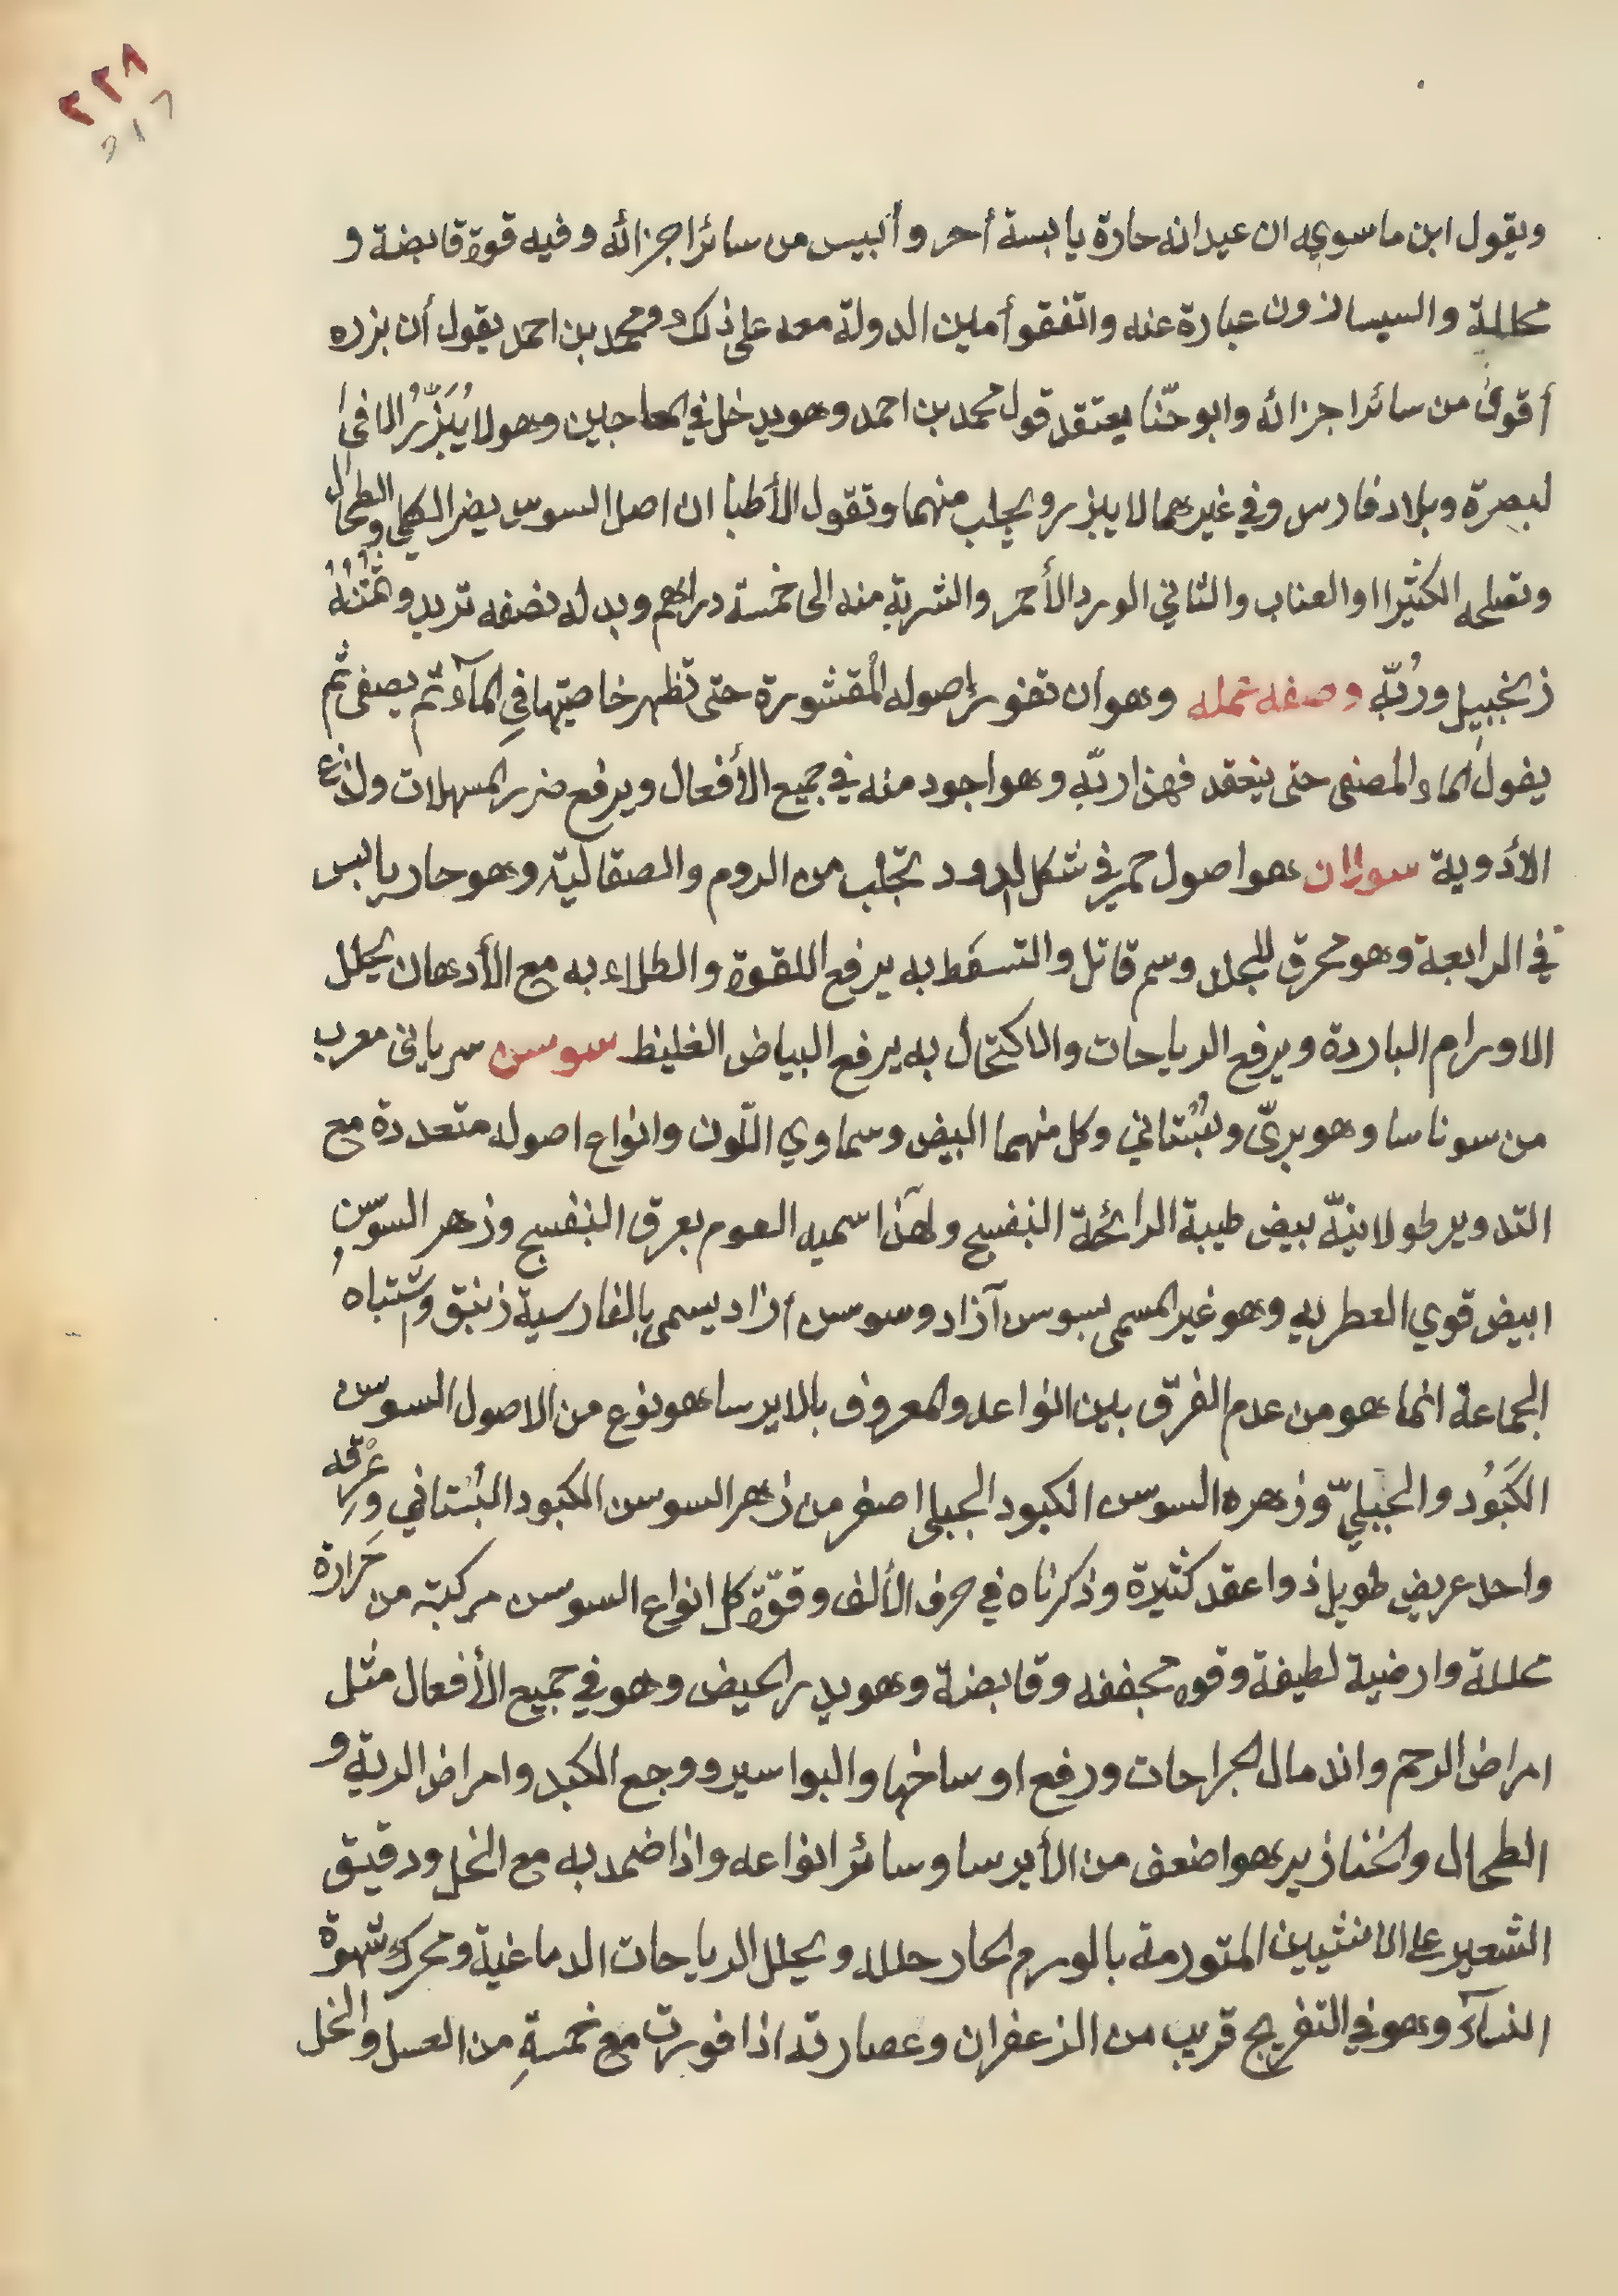 ٢٢٨
ويقول ابن ماسويه ان عيدانه حارة يابسة أحر وأيبس من سائر اجزائه وفيه قوة قابضة و
محللة والسيسازون عبارة عنه واتفقو أمين الدولة معه على ذلك ومحمد بن احمد يقول أن بزره
أقوىٰ من سائر اجزائه وابو حنّا يعتقد قول محمد بن احمد وهو يدخل في المعاجين وهو لا يُبَزّرُ الا في ا
لبصرة وبلاد فارس وفي غيرهما لا يبزر ويجلب منهما وتقول الأطبا ان اصل السوس يضر الكلي والطحال
وتصلحه الكثيرا او العناب والثاني الورد الأحمر والشربة منه الى خمسة دراهم وبدله نصفه تربد وثمنه
زنجبيل ورُبّه وصفه عمله وهو ان تفور اصوله المقشورة حتى تظهر خاصيتها في المآء ثم يصفى ثم
يفول الماء المصفى حتى ينعقد فهذا ربّه وهو اجود منه في جميع الأفعال ويرفع ضرر المسهلات ولذع
الأدوية سوران هو اصول حمر في شكل الدود تجلب من الروم والصقالية وهو حار يابس
في الرابعة وهو محرق للجلد وسم قاتل والتسقط به يرفع اللقوة والطلاء به مع الأدهان يحلل
الاورام الباردة ويرفع الرياحات والاكتحال به يرفع البياض الغليظ سوسن سرياني معرب
من سوناسا وهو بريّ وبُسْتاني وكل منهما البيض وسماوي اللّون وانواع اصوله متعددة مع
التدوير طولانيّة بيض طيبة الرائحة البنفسج ولهذا سميه العوم بعرق البنفسج وزهر السوسن
ابيض قوي العطريه وهو غير المسمى بسوسن آزاد وسوسن أزاد يسمى بالفارسية زنبق واشتباه
الجماعة انما هو من عدم الفرّق بين انواعه والمعروف بالايرسا هو نوع من الاصول السوسن
الكَبُود والجبليّ وزهره السوسن الكبود الجبلي اصغر من زهر السوسن الكبود البُستاني وعِرْقه
واحد عريض طويل ذوا عقد كثيرة وذكرناه في حرف الألف وقوّة كل انواع السوسن مركبة من حَرارة
محللة وارضية لطيفة وقوه مجففه وقابضة وهو يدر الحيض وهو في جميع الأفعال مثل
امراض الرحم واندمال الجراحات ورفع اوساخها والبواسير ووجع الكبد وامراض الرية و
الطحال والخنازير هو اضعف من الأيرسا وسائر انواعه واذا ضمد به مع الخل ودقيق
الشعير على الانثيين المتورمة بالورم الحار حلله ويحلل الرياحات الدماغية ومحرك شهوة
النسآء وهو في التفريح قريب من الزعفران وعصارته اذا فورت مع خمسةِ من العسل والخل